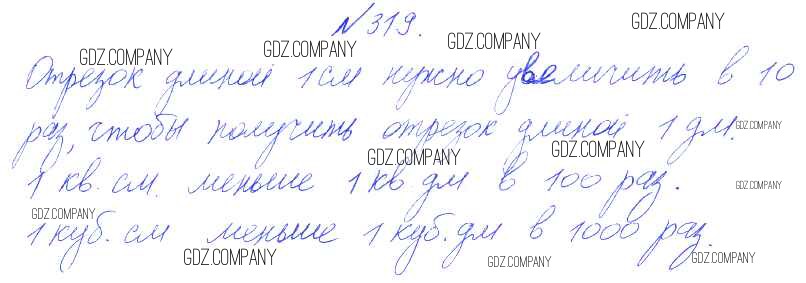 № 319.
Отрезок длиной 1 см нужно увеличить в 10
раз, чтобы получить отрезок длиной 1 дм.
1 кв. см. меньше 1 кв. дм в 100 раз.
1 куб. см меньше 1 куб. дм в 1000 раз.
GDZ.COMPANY
GDZ.COMPANY
GDZ.COMPANY
GDZ.COMPANY
GDZ.COMPANY
GDZ.COMPANY
GDZ.COMPANY
GDZ.COMPANY
GDZ.COMPANY
GDZ.COMPANY
GDZ.COMPANY
GDZ.COMPANY